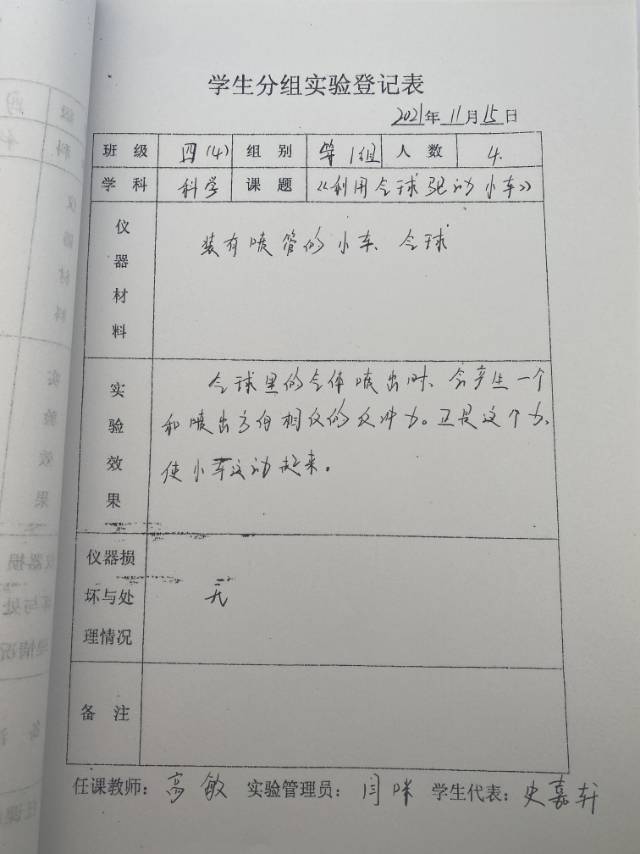 学生分组实验登记表
2021年11月15日
班级 四(4) 组别 第1组 人数 4.
学科 科学 课题 《利用气球驱动小车》
仪器材料 装有喷管的小车、气球
实验效果 气球里的气体喷出时、会产生一个
和喷出方向相反的反冲力。正是这个力,
使小车运动起来。
仪器损
坏与处 无
理情况
备注
任课教师: 高敏 实验管理员: 闫咪 学生代表: 史嘉轩